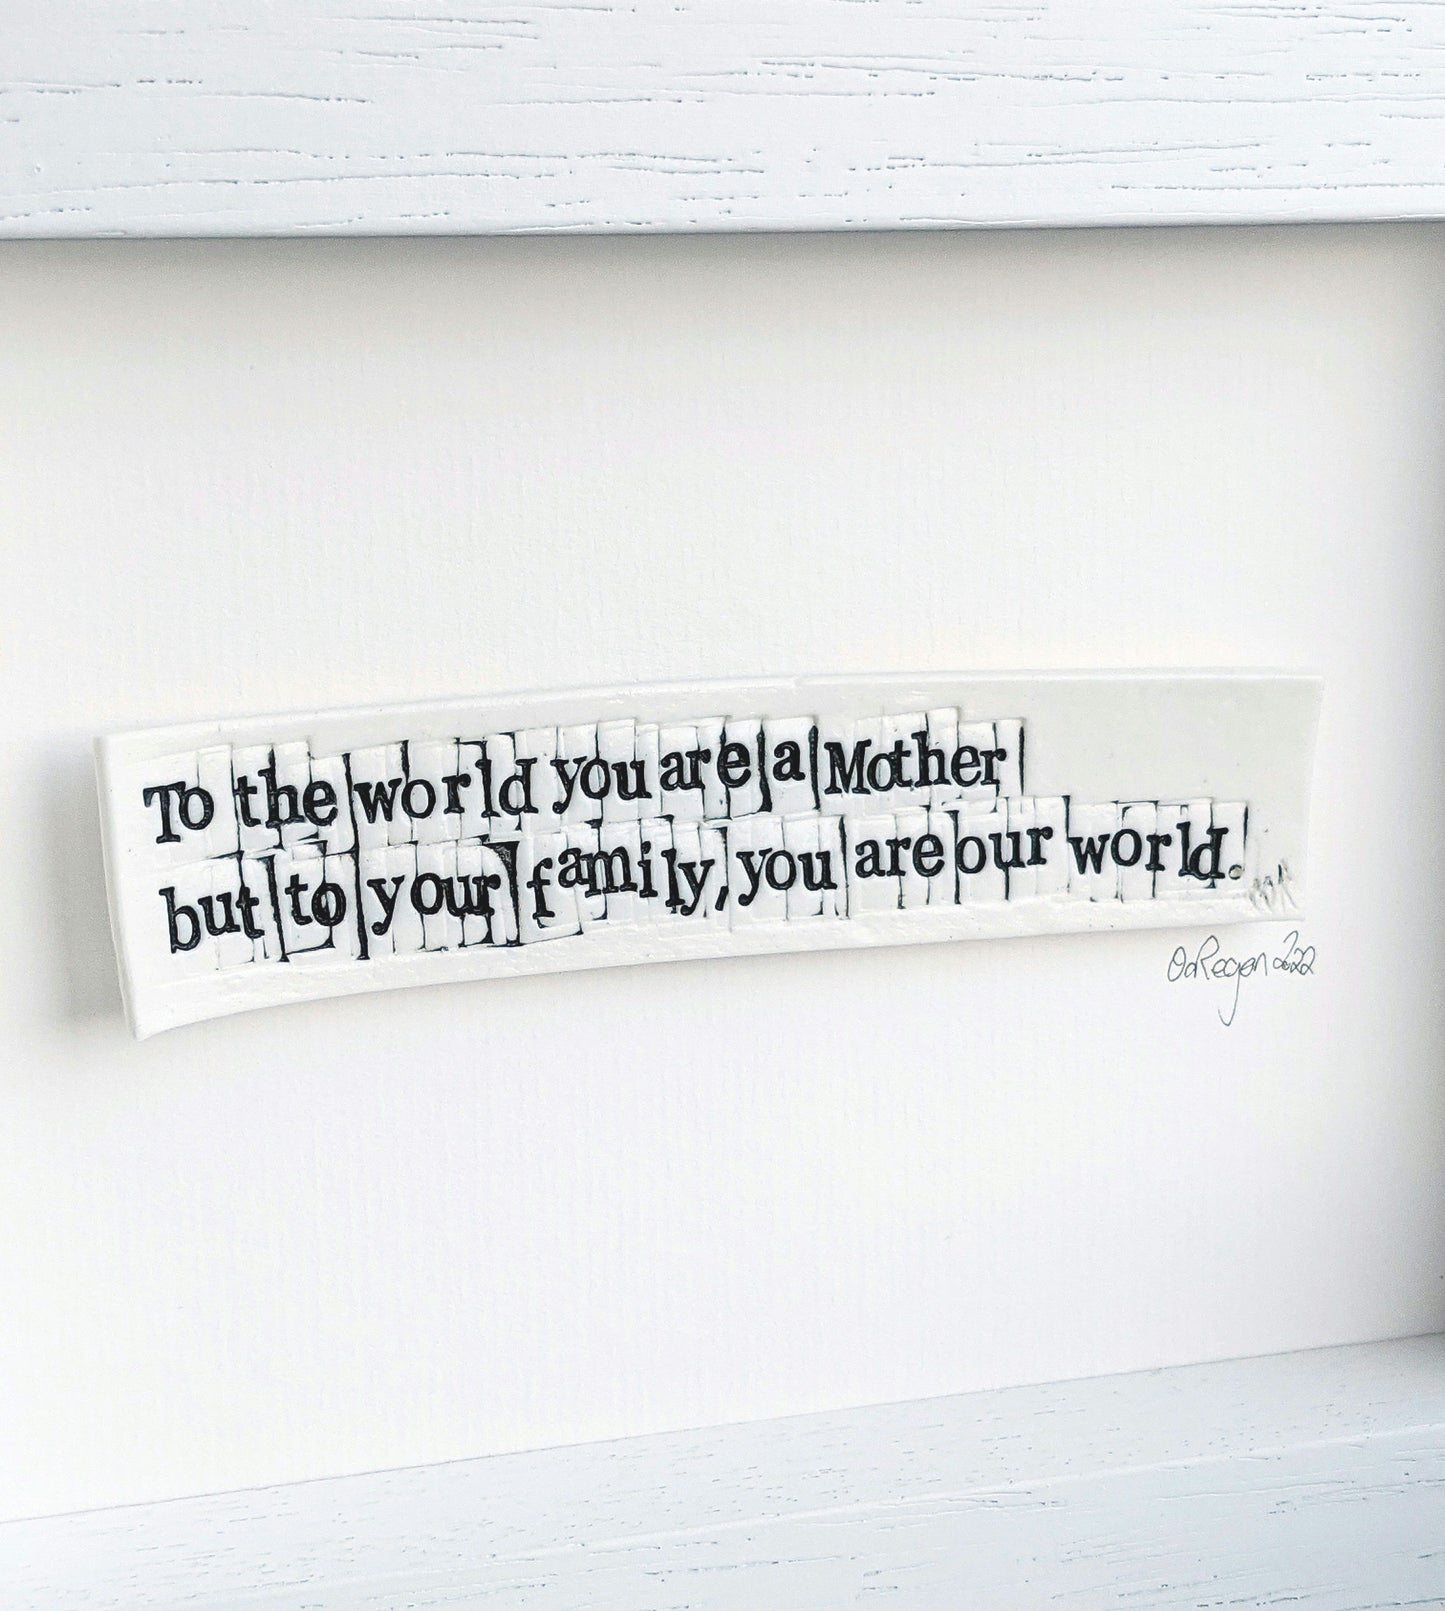 To the world you are a Mother
but to your family, you are our world.
2022